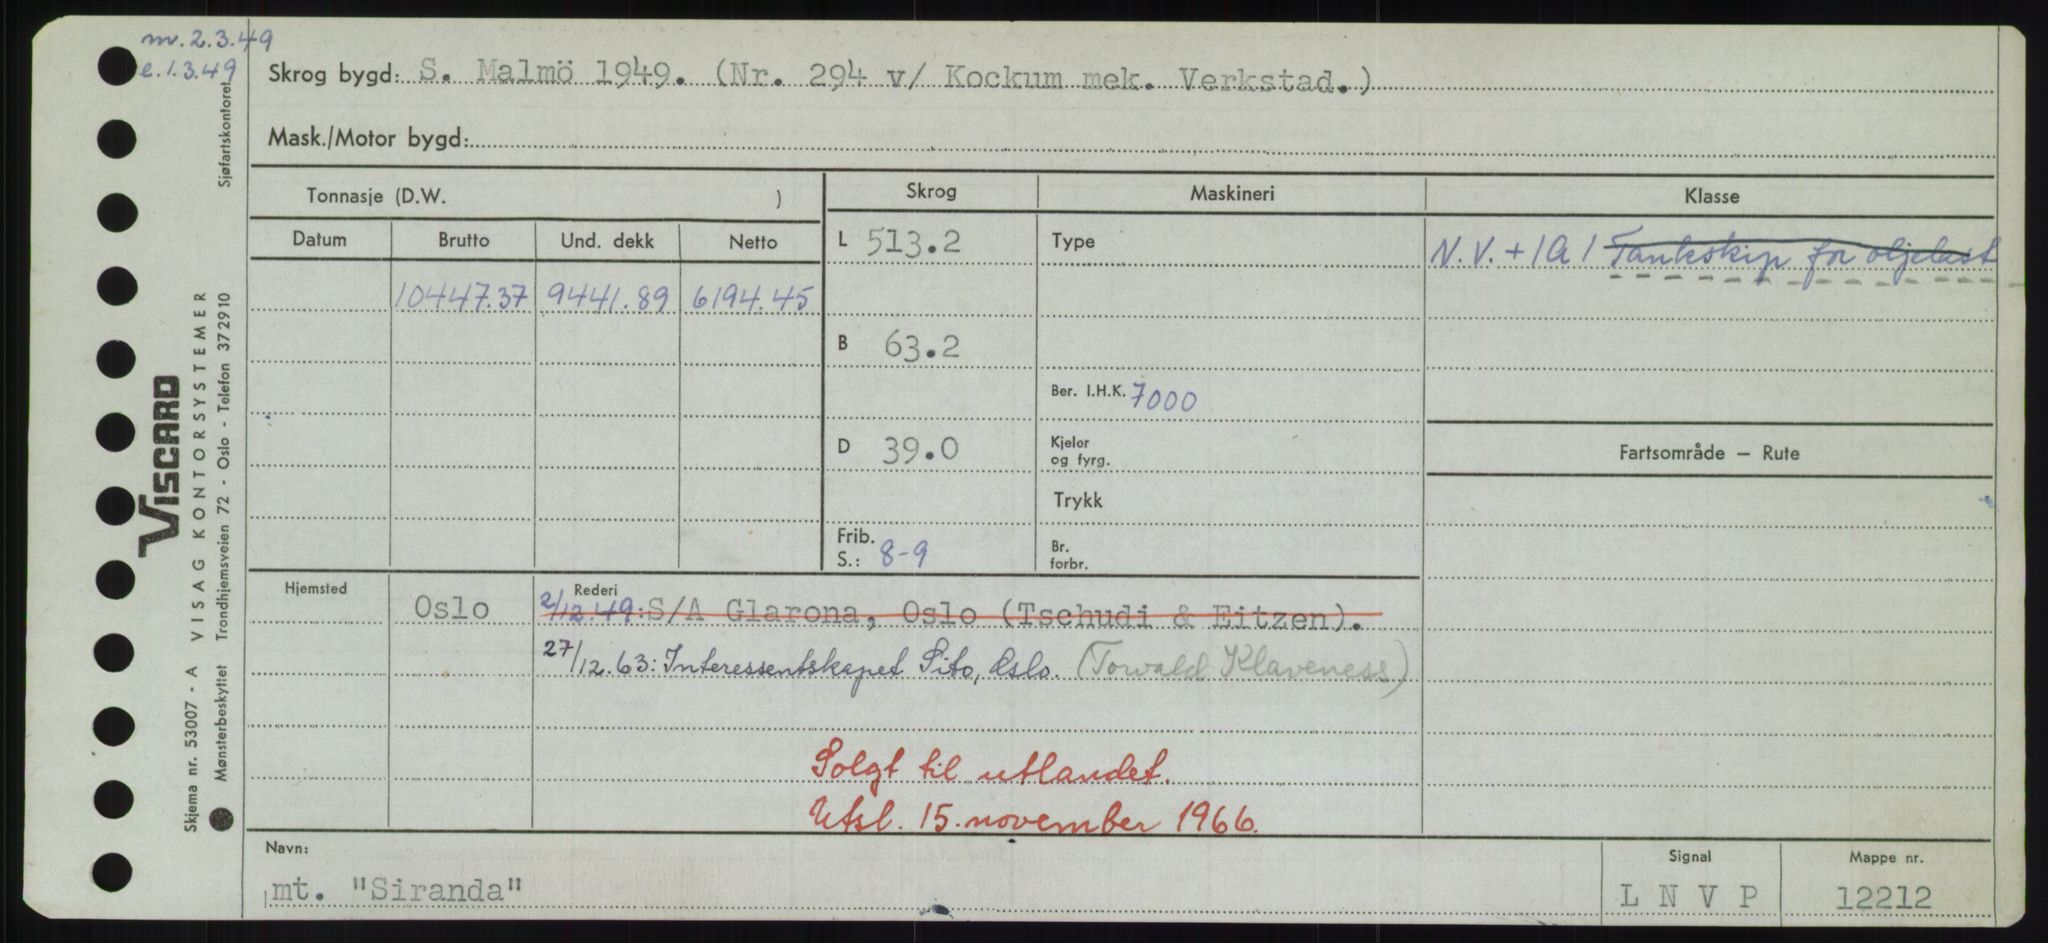 m. 2.3.49
e. 1.3.49
Sjøfartskontoret
Skrog bygd: S. Malmö 1949. (Nr. 294 v/ Kockum mek. Verkstad.)
Mask./Motor bygd:
Tonnasje (D.W. )
Skrog
Maskineri
Klasse
Datum
Brutto
Und. dekk
Netto
10447.37
9441.89
6194.45
L 513.2
B 63.2
D 39.0
Frib.
S.: 8-9
Type
Ber. I.H.K. 7000
Kjeler
og fyrg.
Trykk
Br.
forbr.
N.V. + 1A1 Tankskip for oljelast
Fartsområde – Rute
Hjemsted
Oslo
Rederi
2/12.49: S/A Glarona, Oslo (Tschudi & Eitzen).
27/12.63: Interessentskapet Sito, Oslo. (Torvald Klaveness)
Solgt til utlandet.
Utsl. 15. november 1966.
Navn:
mt. "Siranda"
Signal
L N V P
Mappe nr.
12212
VISCARD
Skjema nr. 53007 - A VISAG KONTORSYSTEMER
Mønsterbeskyttet Trondhjemsveien 72 - Oslo - Telefon 372910